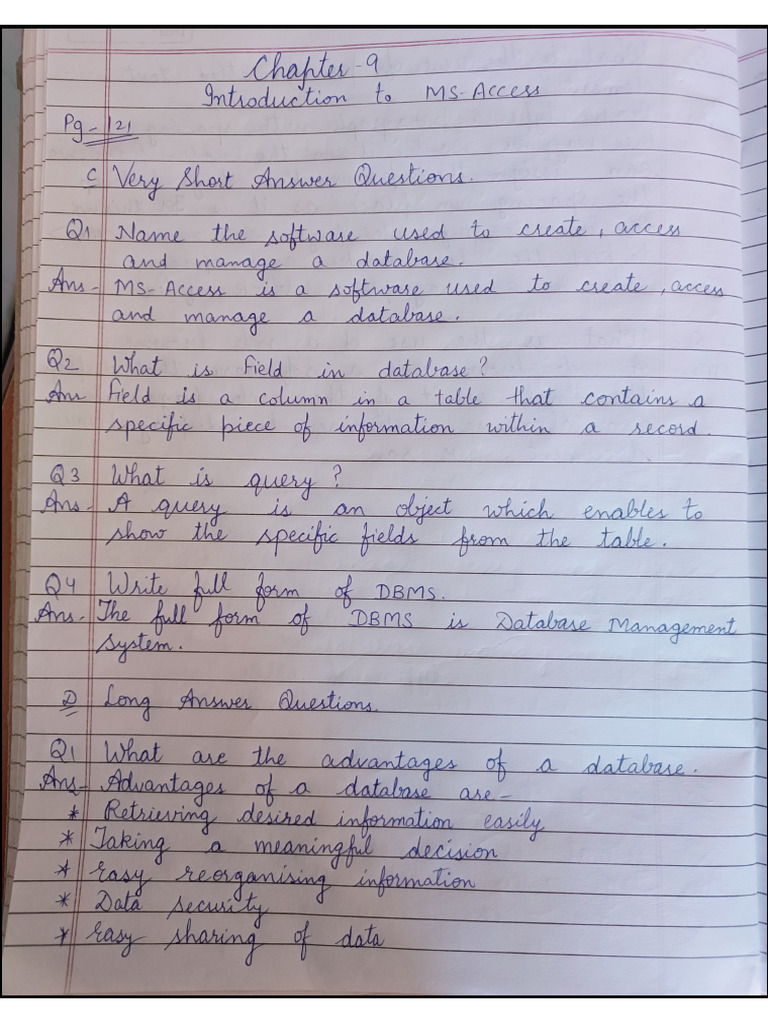 Chapter-9
Introduction to MS-Access
Pg-121
C Very Short Answer Questions.
Q1 Name the software used to create, access
and manage a database.
Ans- MS-Access is a software used to create, access
and manage a database.
Q2 What is Field in database?
Ans Field is a column in a table that contains a
specific piece of information within a record.
Q3 What is query?
Ans- A query is an object which enables to
show the specific fields from the table.
Q4 Write full form of DBMS.
Ans- The full form of DBMS is Database Management
System.
D Long Answer Questions.
Q1 What are the advantages of a database.
Ans- Advantages of a database are-
* Retrieving desired information easily
* Taking a meaningful decision
* Easy reorganising information
* Data security
* Easy sharing of data